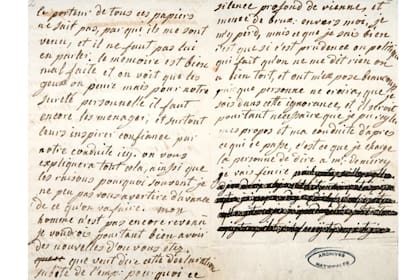 le porteur de tous ces papiers
ne sait pas, par qui ils me sont
venu, et il ne faut pas lui
en parler. le memoire est bien
mal faite et on voit que les
gens on peur mais pour notre
sureté personelle il faut
encore les menager, et surtout
leurs inspirer confiance par
notre conduite icy. on vous
expliquera tout cela, ainsi que
les raisons pourquoi souvent je
ne peu pas vous avertire d'avance
de ce qu'on va faire. mon
homme n'est pas encore revenu
je voudrois pourtant bien avoir
des nouvelles d'ou vous êtes.
que veut dire cette declaration
subite de l'emp: pourquoi ce
silence profond de vienne, et
meme de brux: envers moi, je
m'y perd, mais ce que je sais bien
est que si c'est prudence ou politique
qui fait qu'on ne me dit rien on
a bien tort, et on m'expose beaucoup
que personne ne croira que je
sois dans cette ignorance, et il seroit
pourtant necessaire que je puis regler
mes propos et ma conduite d'apres
ce qui ce passe, c'est ce que je charge
la personne de dire a mr. de mercy.
je vais finire
ARCHIVES
NATIONALES